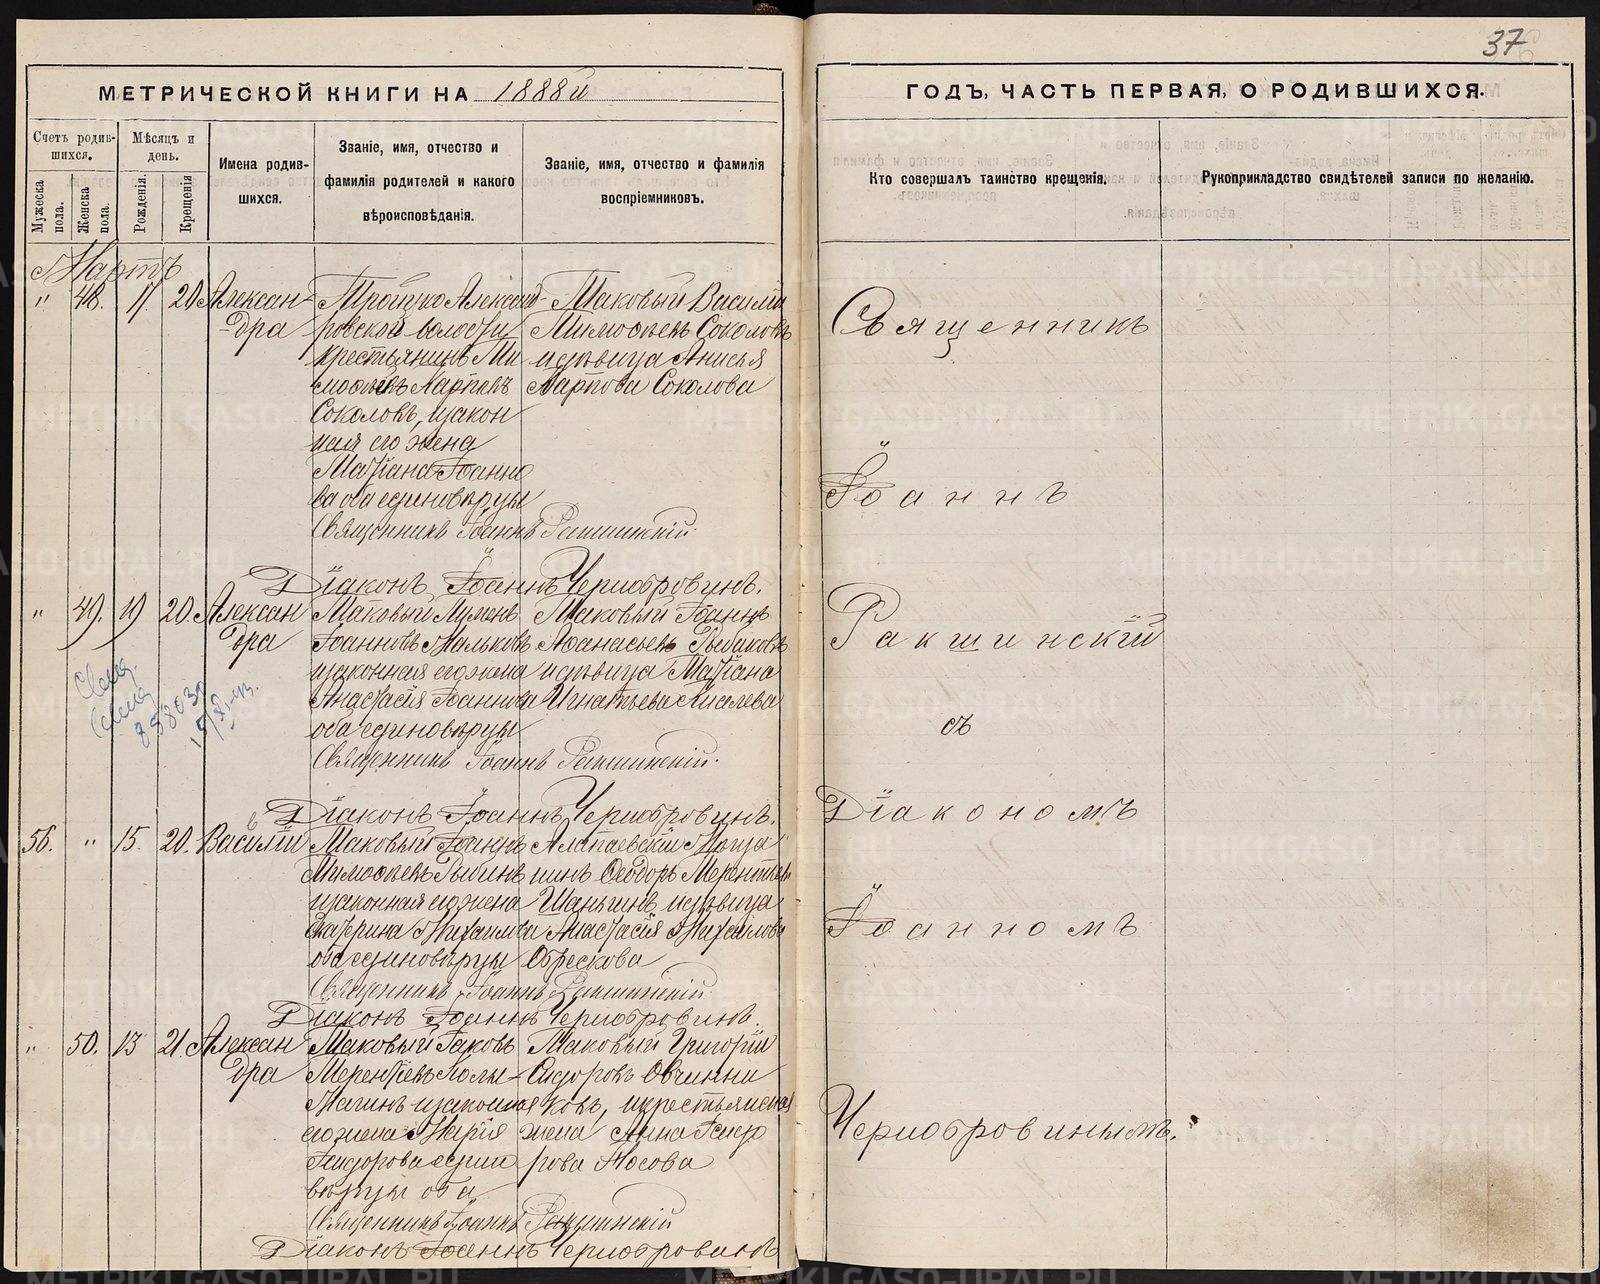 37
МЕТРИЧЕСКОЙ КНИГИ НА 1888й
ГОДЪ, ЧАСТЬ ПЕРВАЯ, О РОДИВШИХСЯ.
Счетъ родив-
шихся.
Мужеска пола.
Женска пола.
Мѣсяцъ и
день.
Рожденія.
Крещенія
Имена родив-
шихся.
Званіе, имя, отчество и
фамилія родителей и какого
вѣроисповѣданія.
Званіе, имя, отчество и фамилія
воспріемниковъ.
Кто совершалъ таинство крещенія.
Рукоприкладство свидѣтелей записи по желанію.
Мартъ
" 48. 17. 20 Алексан-
дра
Троицко Александ-
ровской волости
крестьянинъ Ти
моѳеевъ Карповъ
Соколовъ, изакон
ная его жена
Татіана Іоанно
ва оба единовѣрцы
Таковый Василій
Тимоѳеевъ Соколовъ
идѣвица Анисья
Карпова Соколова
Священникъ Іоаннъ Ракшинскій.
Діаконъ Іоаннъ Чернобровинъ.
" 49. 19 20. Алексан
дра
Таковый
Іоанновъ Мальковъ
изаконная его жена
Анастасія Іоаннова
оба единовѣрцы
Таковый Іоаннъ
Аѳанасьевъ Рыбаковъ
идѣвица Татіана
Игнатьева Киселева
Священникъ Іоаннъ Ракшинскій.
Діаконъ Іоаннъ Чернобровинъ.
858030
56. " 15. 20. Василій
Таковый Іоаннъ
Тимоѳеевъ Рыбинъ
изаконная его жена
Екатерина Михаилова
оба единовѣрцы
Алапаевскій
Ѳеодоръ Терентьевъ
Шаньгинъ идѣвица
Анастасія Михаилова
Обрескова
Священникъ Іоаннъ Ракшинскій
Діаконъ Іоаннъ Чернобровинъ.
" 50. 13 21. Алексан
дра
Таковый Іаковъ
Терентьевъ
изаконная
его жена Марія
Исидорова едино
вѣрцы оба
Таковый Григорій
Сидоровъ Овчинни
ковъ, икрестьянская
жена Анна Исидо
рова Носова
Священникъ Іоаннъ Ракшинскій
Діаконъ Іоаннъ Чернобровинъ
Священникъ
Іоаннъ
Ракшинскій
съ
Діакономъ
Іоанномъ
Чернобровинымъ.
METRIKI.GASO-URAL.RU